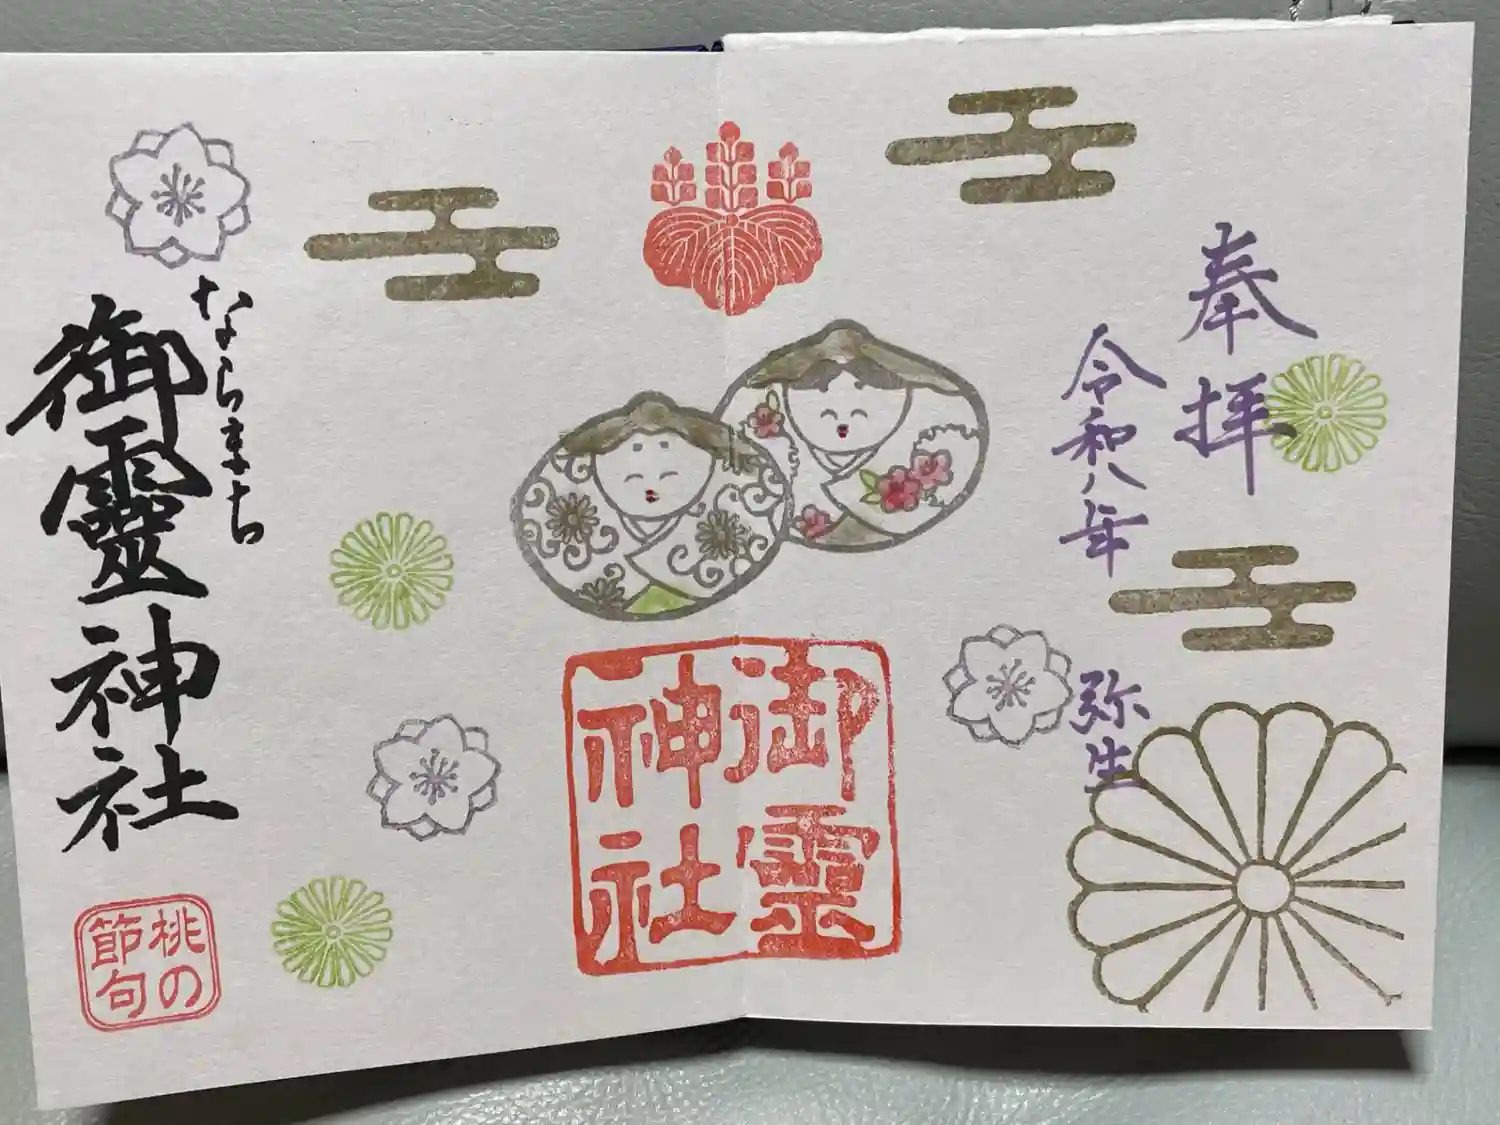 奉拝
令和八年
弥生
御霊
神社
ならまち
御靈神社
桃の
節句